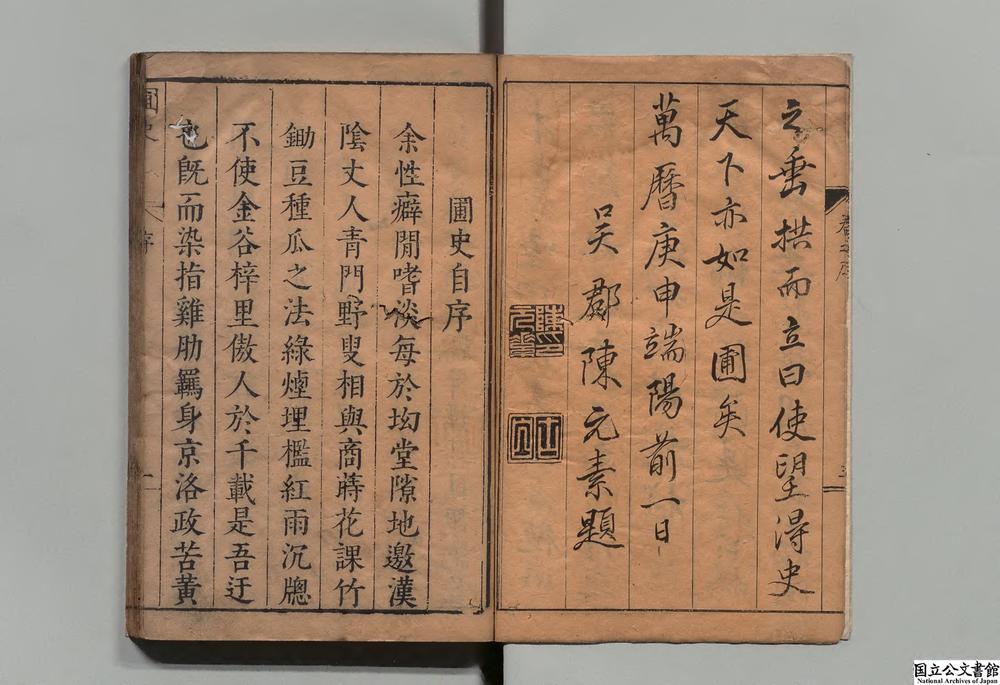 之垂拱而立曰使望得史
天下亦如是圃矣
萬曆庚申端陽前一日
吴郡陳元素題
圃史自序
余性癖閒嗜淡每於坳堂隙地邀漢
陰丈人青門野叟相與商蒔花課竹
鋤豆種瓜之法綠煙埋檻紅雨沉牕
不使金谷梓里傲人於千載是吾迂
也既而染指雞肋羈身京洛政苦黃
圃史
序
一
国立公文書館
National Archives of Japan